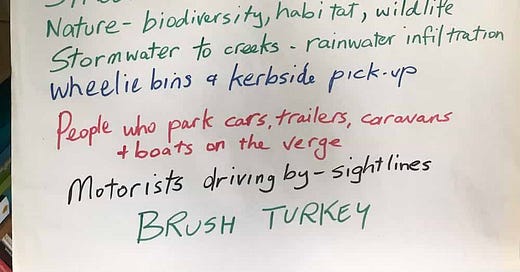 Nature - biodiversity, habitat, wildlife
Stormwater to creeks - rainwater infiltration
wheelie bins & kerbside pick-up
People who park cars, trailers, caravans
+ boats on the verge
Motorists driving by - sightlines
BRUSH TURKEY